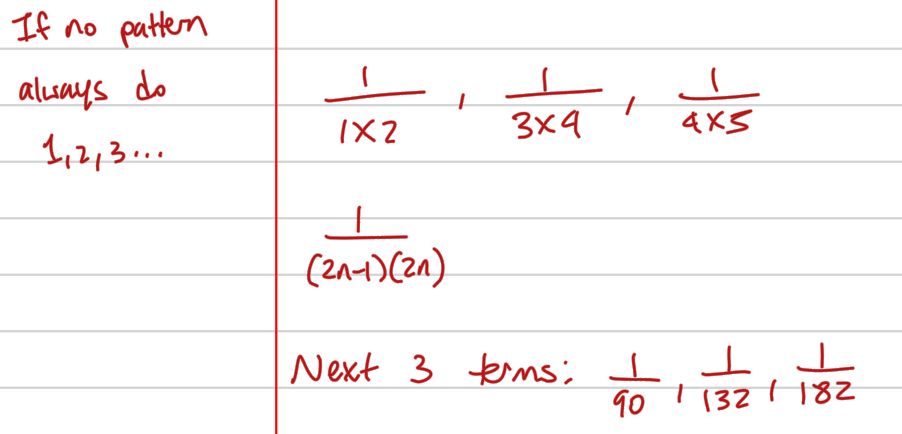 If no pattern
always do
1, 2, 3 ...
1/(1×2) , 1/(3×4) , 1/(4×5)
1/((2n-1)(2n))
Next 3 terms: 1/90 , 1/132 , 1/182